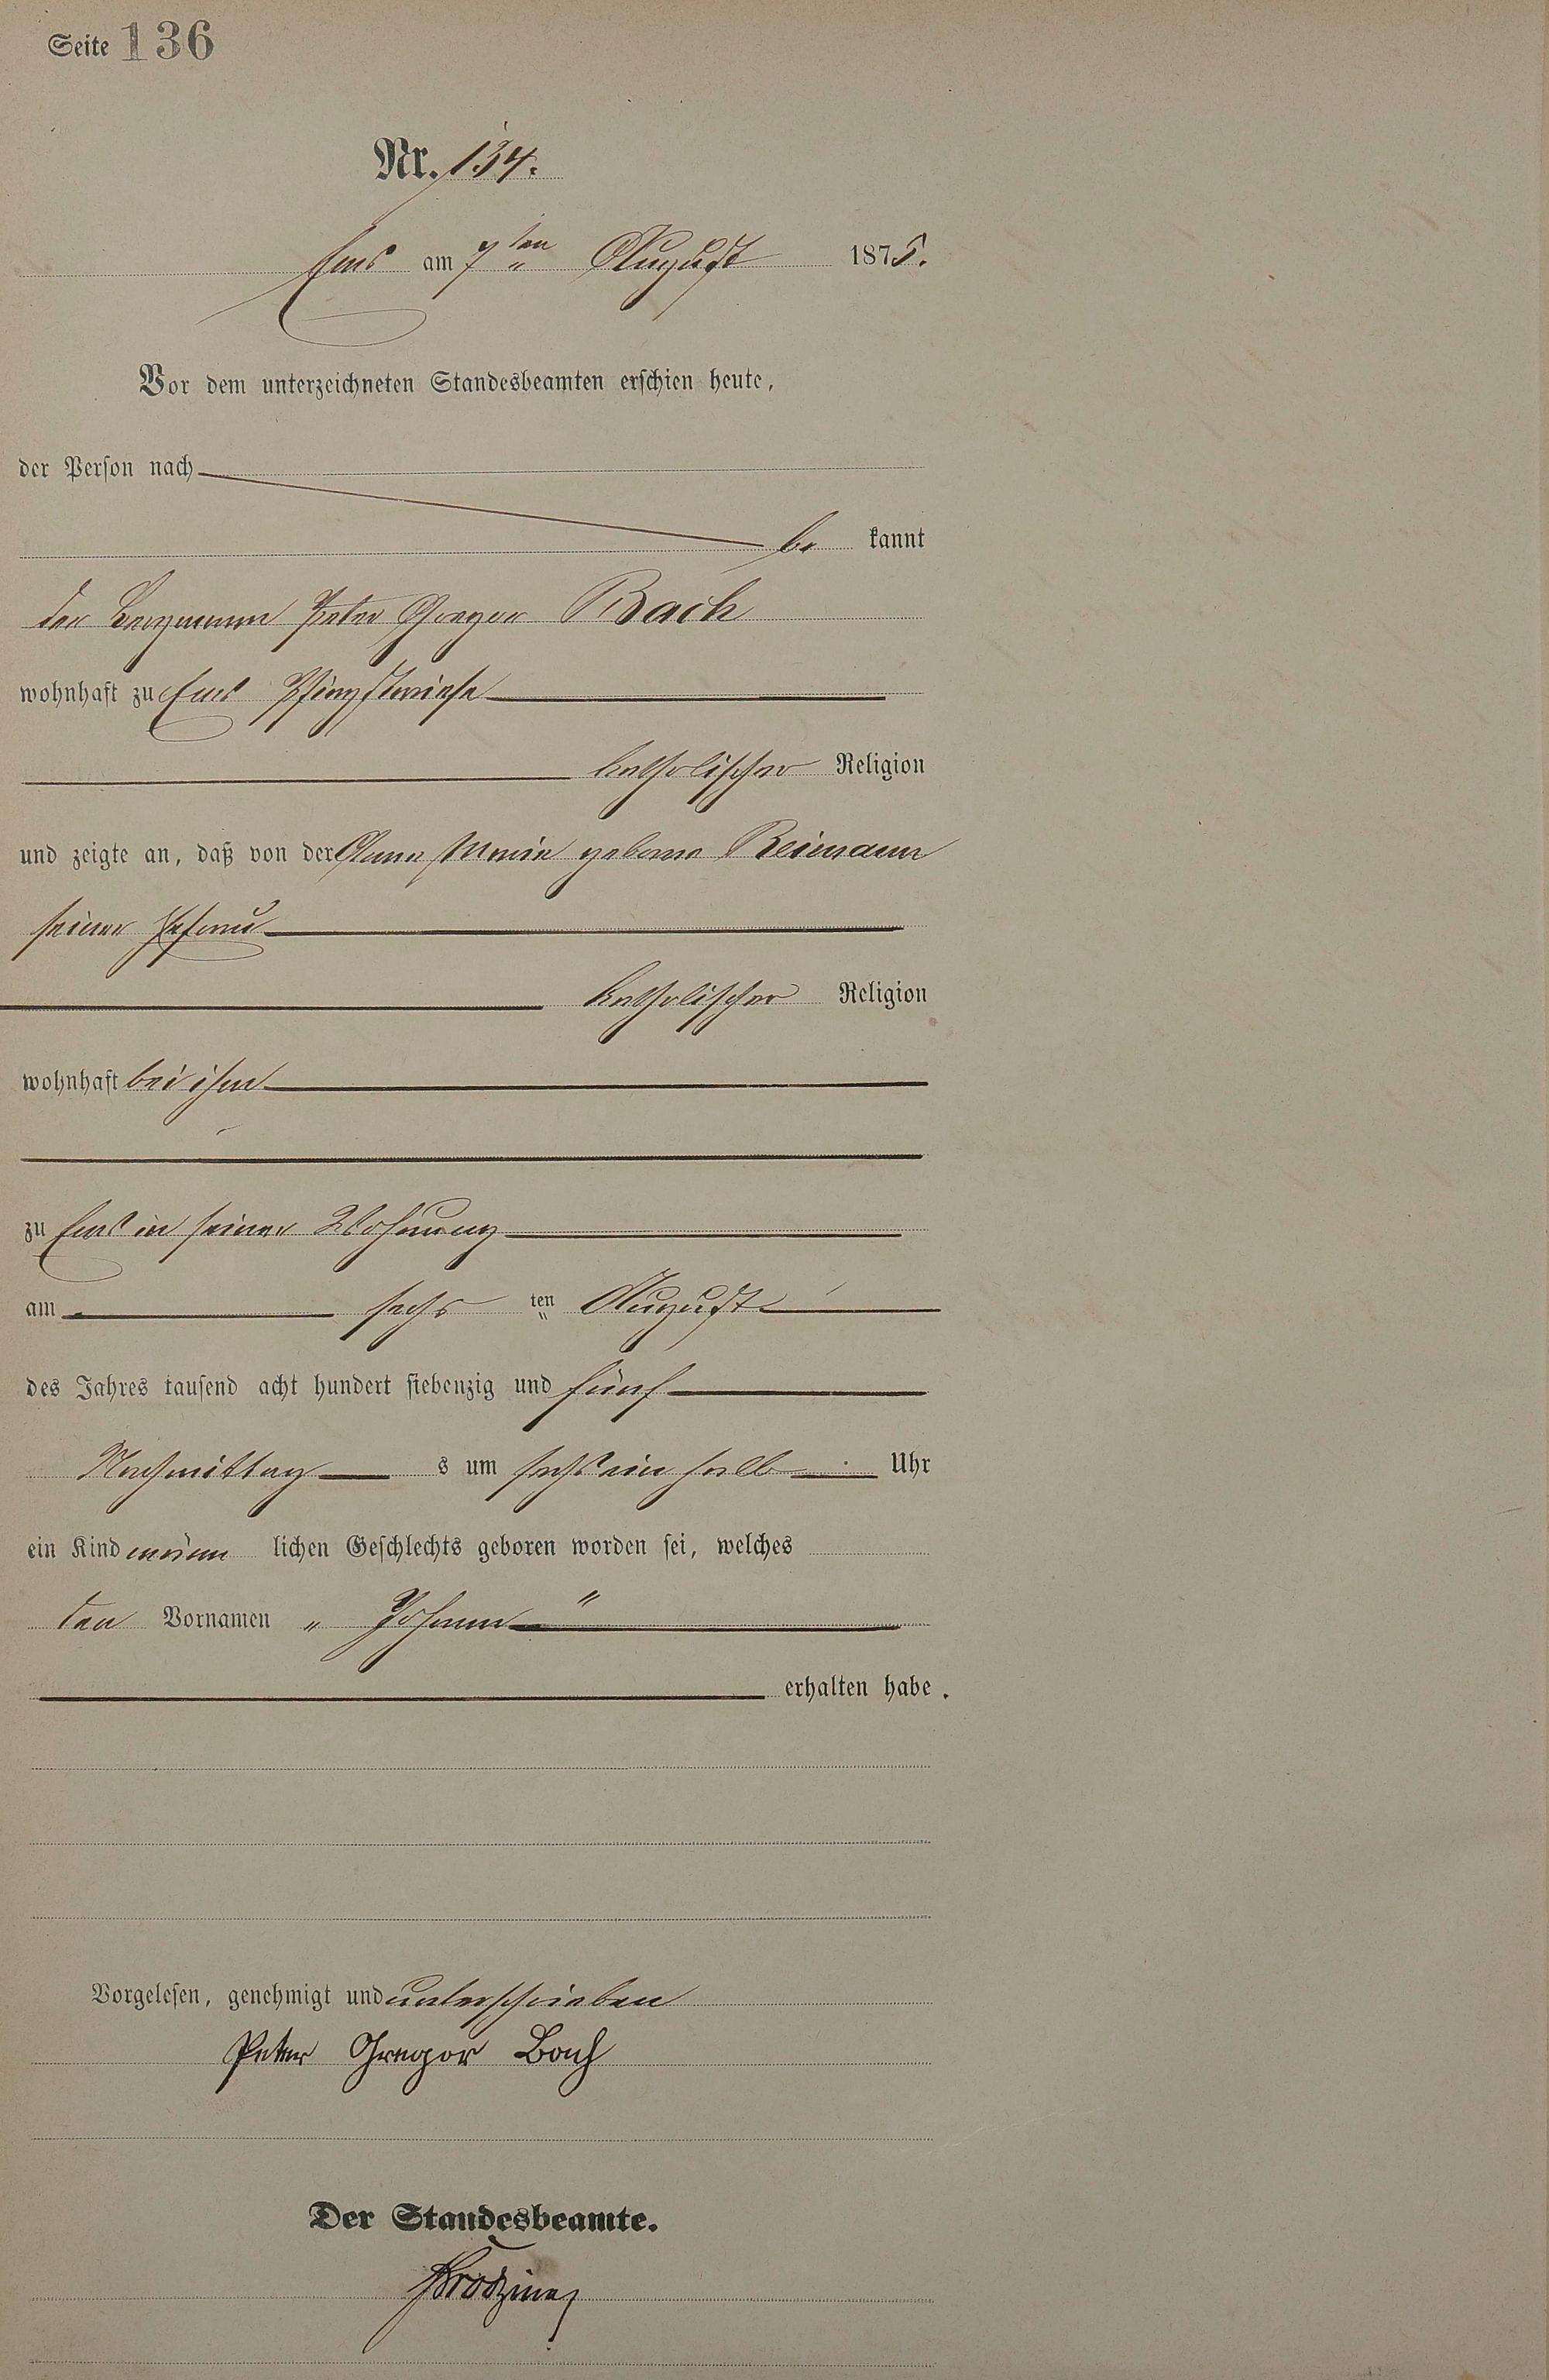 Seite 136
Nr. 134.
Ems am 7ten August 1875.
Vor dem unterzeichneten Standesbeamten erschien heute,
der Person nach
be kannt
der Bergmann Peter Gregor Bach
wohnhaft zu Ems Pfingstwiese
katholischer Religion
und zeigte an, daß von der Anna Maria geborne Reimann
seiner Ehefrau
katholischer Religion
wohnhaft bei ihm
zu Ems in seiner Wohnung
am sechs ten August
des Jahres tausend acht hundert siebenzig und fünf
Nachmittag s um sechs ein halb Uhr
ein Kind männ lichen Geschlechts geboren worden sei, welches
den Vornamen „ Johann "
erhalten habe.
Vorgelesen, genehmigt und unterschrieben
Peter Gregor Bach
Der Standesbeamte.